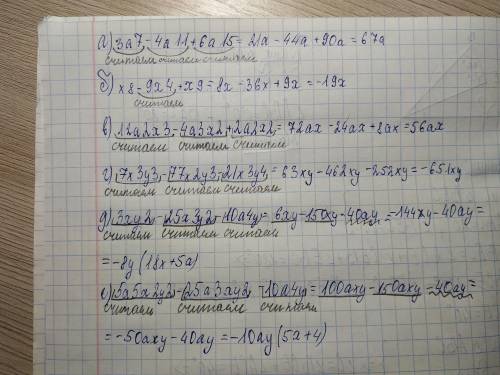 а) 3a7 - 4a11 + 6a15 = 21a - 44a + 90a = 67a
считаем считаем считаем
б) x8 - 9x4 + x9 = 8x - 36x + 9x = -19x
считаем
в) 12a2x3 - 4a3x2 + 2a2x2 = 72ax - 24ax + 8ax = 56ax
считаем считаем считаем
г) 7x3y3 - 77x2y3 - 21x3y4 = 63xy - 462xy - 252xy = -651xy
считаем считаем считаем
д) 3xy2 - 25x3y2 - 10a4y = 6xy - 150xy - 40ay = -144xy - 40ay =
считаем считаем считаем
= -8y(18x + 5a)
е) 5a5x2y2 - 25a3xy2 - 10a4y = 100axy - 150axy - 40ay =
считаем считаем считаем
= -50axy - 40ay = -10ay(5a + 4)